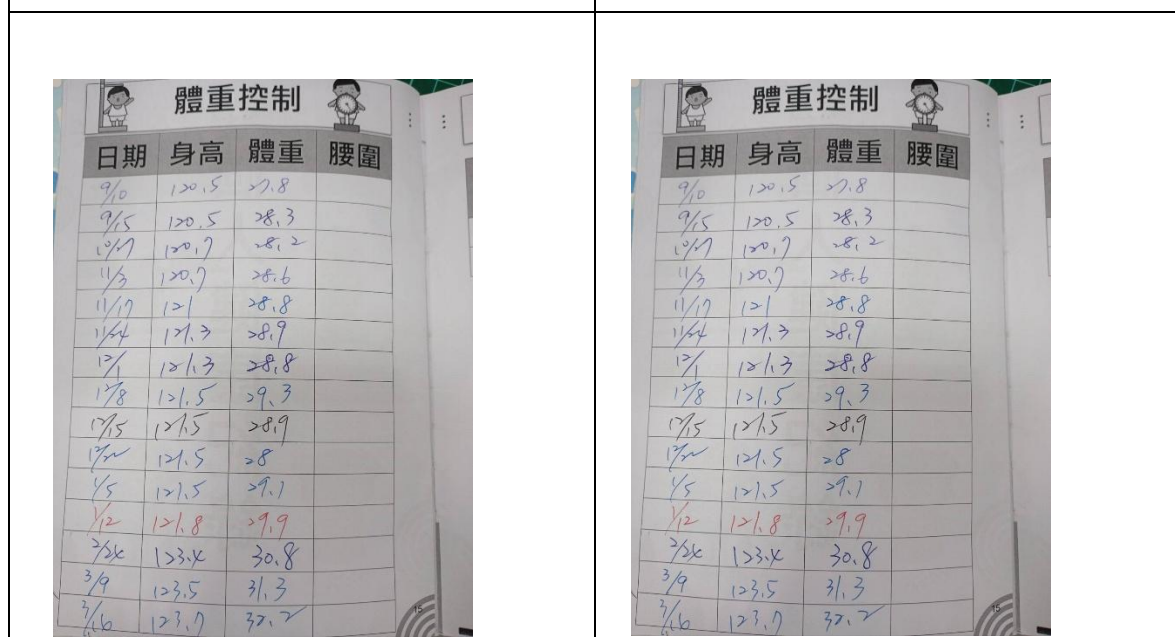 體重控制
日期 身高 體重 腰圍
9/10 120.5 27.8
9/15 120.5 28.3
10/27 120.7 28.2
11/3 120.7 28.6
11/17 121 28.8
11/24 121.3 28.9
12/1 121.3 28.8
12/8 121.5 29.3
12/15 121.5 28.9
12/22 121.5 28
1/5 121.5 29.1
1/12 121.8 29.9
2/24 123.4 30.8
3/9 123.5 31.3
3/16 123.7 32.2
15
體重控制
日期 身高 體重 腰圍
9/10 120.5 27.8
9/15 120.5 28.3
10/27 120.7 28.2
11/3 120.7 28.6
11/17 121 28.8
11/24 121.3 28.9
12/1 121.3 28.8
12/8 121.5 29.3
12/15 121.5 28.9
12/22 121.5 28
1/5 121.5 29.1
1/12 121.8 29.9
2/24 123.4 30.8
3/9 123.5 31.3
3/16 123.7 32.2
15